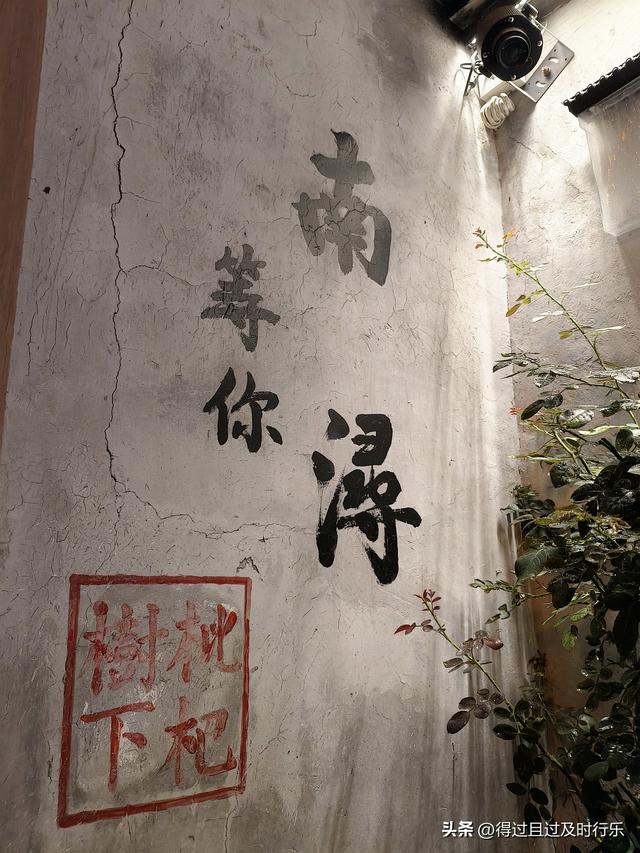 南潯
等你
枇杷
樹下
头条 @得过且过及时行乐